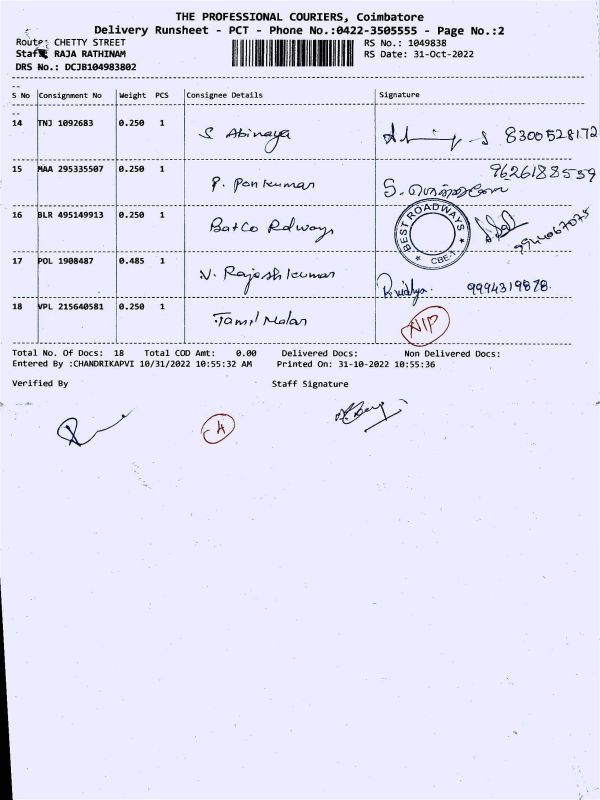 THE PROFESSIONAL COURIERS, Coimbatore
Delivery Runsheet - PCT - Phone No.:0422-3505555 - Page No.:2
Route: CHETTY STREET
RS No.: 1049838
Staff: RAJA RATHINAM
RS Date: 31-Oct-2022
DRS No.: DCJB104983802
S No Consignment No Weight PCS Consignee Details Signature
14 TNJ 1092683 0.250 1 S Abinaya 8300528172
15 MAA 295335507 0.250 1 P. Pon kumar 9626188559
16 BLR 495149913 0.250 1 BEST ROADWAYS CBE-1
17 POL 1908487 0.485 1 V. Rajesh kumar 9994319878
18 VPL 215640581 0.250 1 Tamil Malar NIP
Total No. Of Docs: 18 Total COD Amt: 0.00 Delivered Docs: Non Delivered Docs:
Entered By :CHANDRIKAPVI 10/31/2022 10:55:32 AM Printed On: 31-10-2022 10:55:36
Verified By Staff Signature